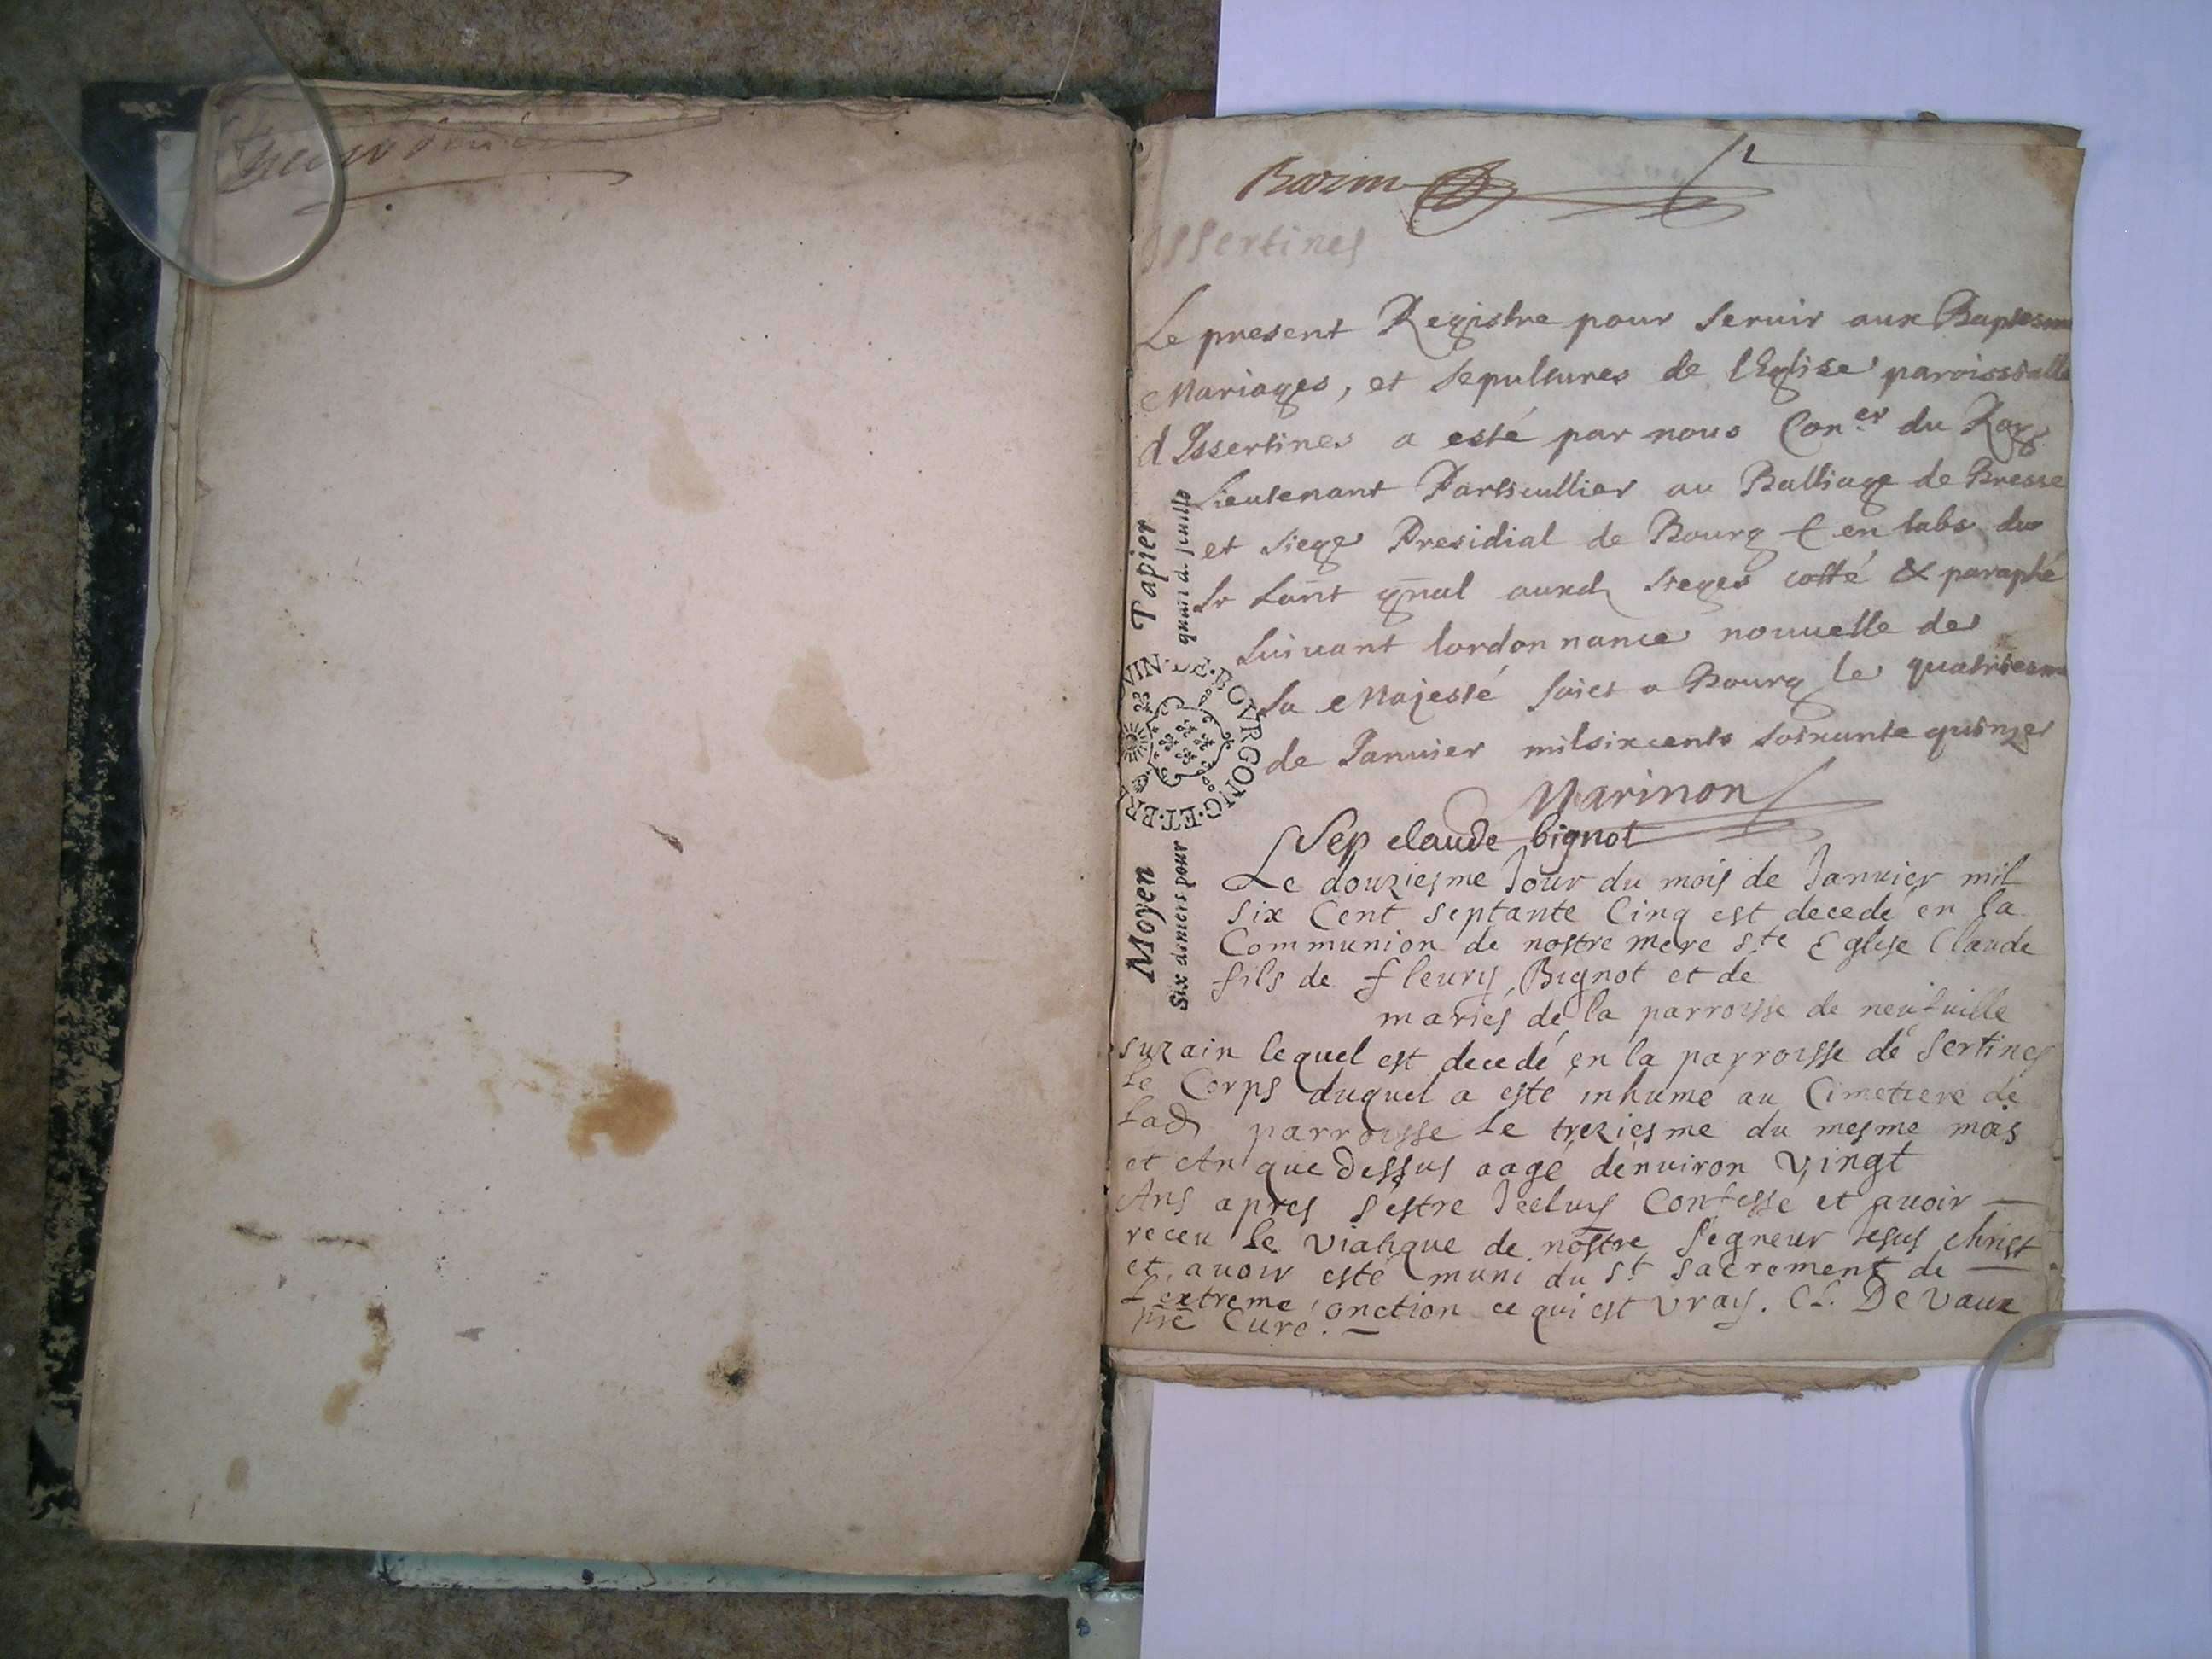 Issertines
Le present Registre pour seruir aux Baptesme
Mariages, et sepultures de lEglise paroissialle
dIssertines a esté par nous Con.er du Roy
Lieutenant Particullier au Balliage de Bresse
et siege Presidial de Bourg & en labs du
Sr Lant gnal auxd sieges cotté & paraphé
suiuant lordonnance nouuelle de
sa Majesté faict a Bourg le quatriesme
de Januier milsixcents soixante quinze
Marinon
Sep claude bignot
Le douziesme Jour du mois de Januier mil
six Cent septante Cinq est decedé en la
Communion de nostre mere ste Eglise Claude
fils de fleury Bignot et de
mariés de la parroisse de neufuille
sur ain lequel est decedé en la parroisse de sertines
le Corps duquel a esté inhumé au Cimetiere de
Lad parroisse Le treziesme du mesme mois
et An que dessus aagé denuiron vingt
Ans apres s'estre Iceluy Confesse et auoir
receu le viatique de nostre segneur Jesus christ
et auoir esté muni du st sacrement de
L'extreme onction ce qui est vray. Cl. De vaux
pre Curé.
Moyen Papier
Six deniers pour quart de feuille
VIN·DE·BOVRGONG·ET·BRE